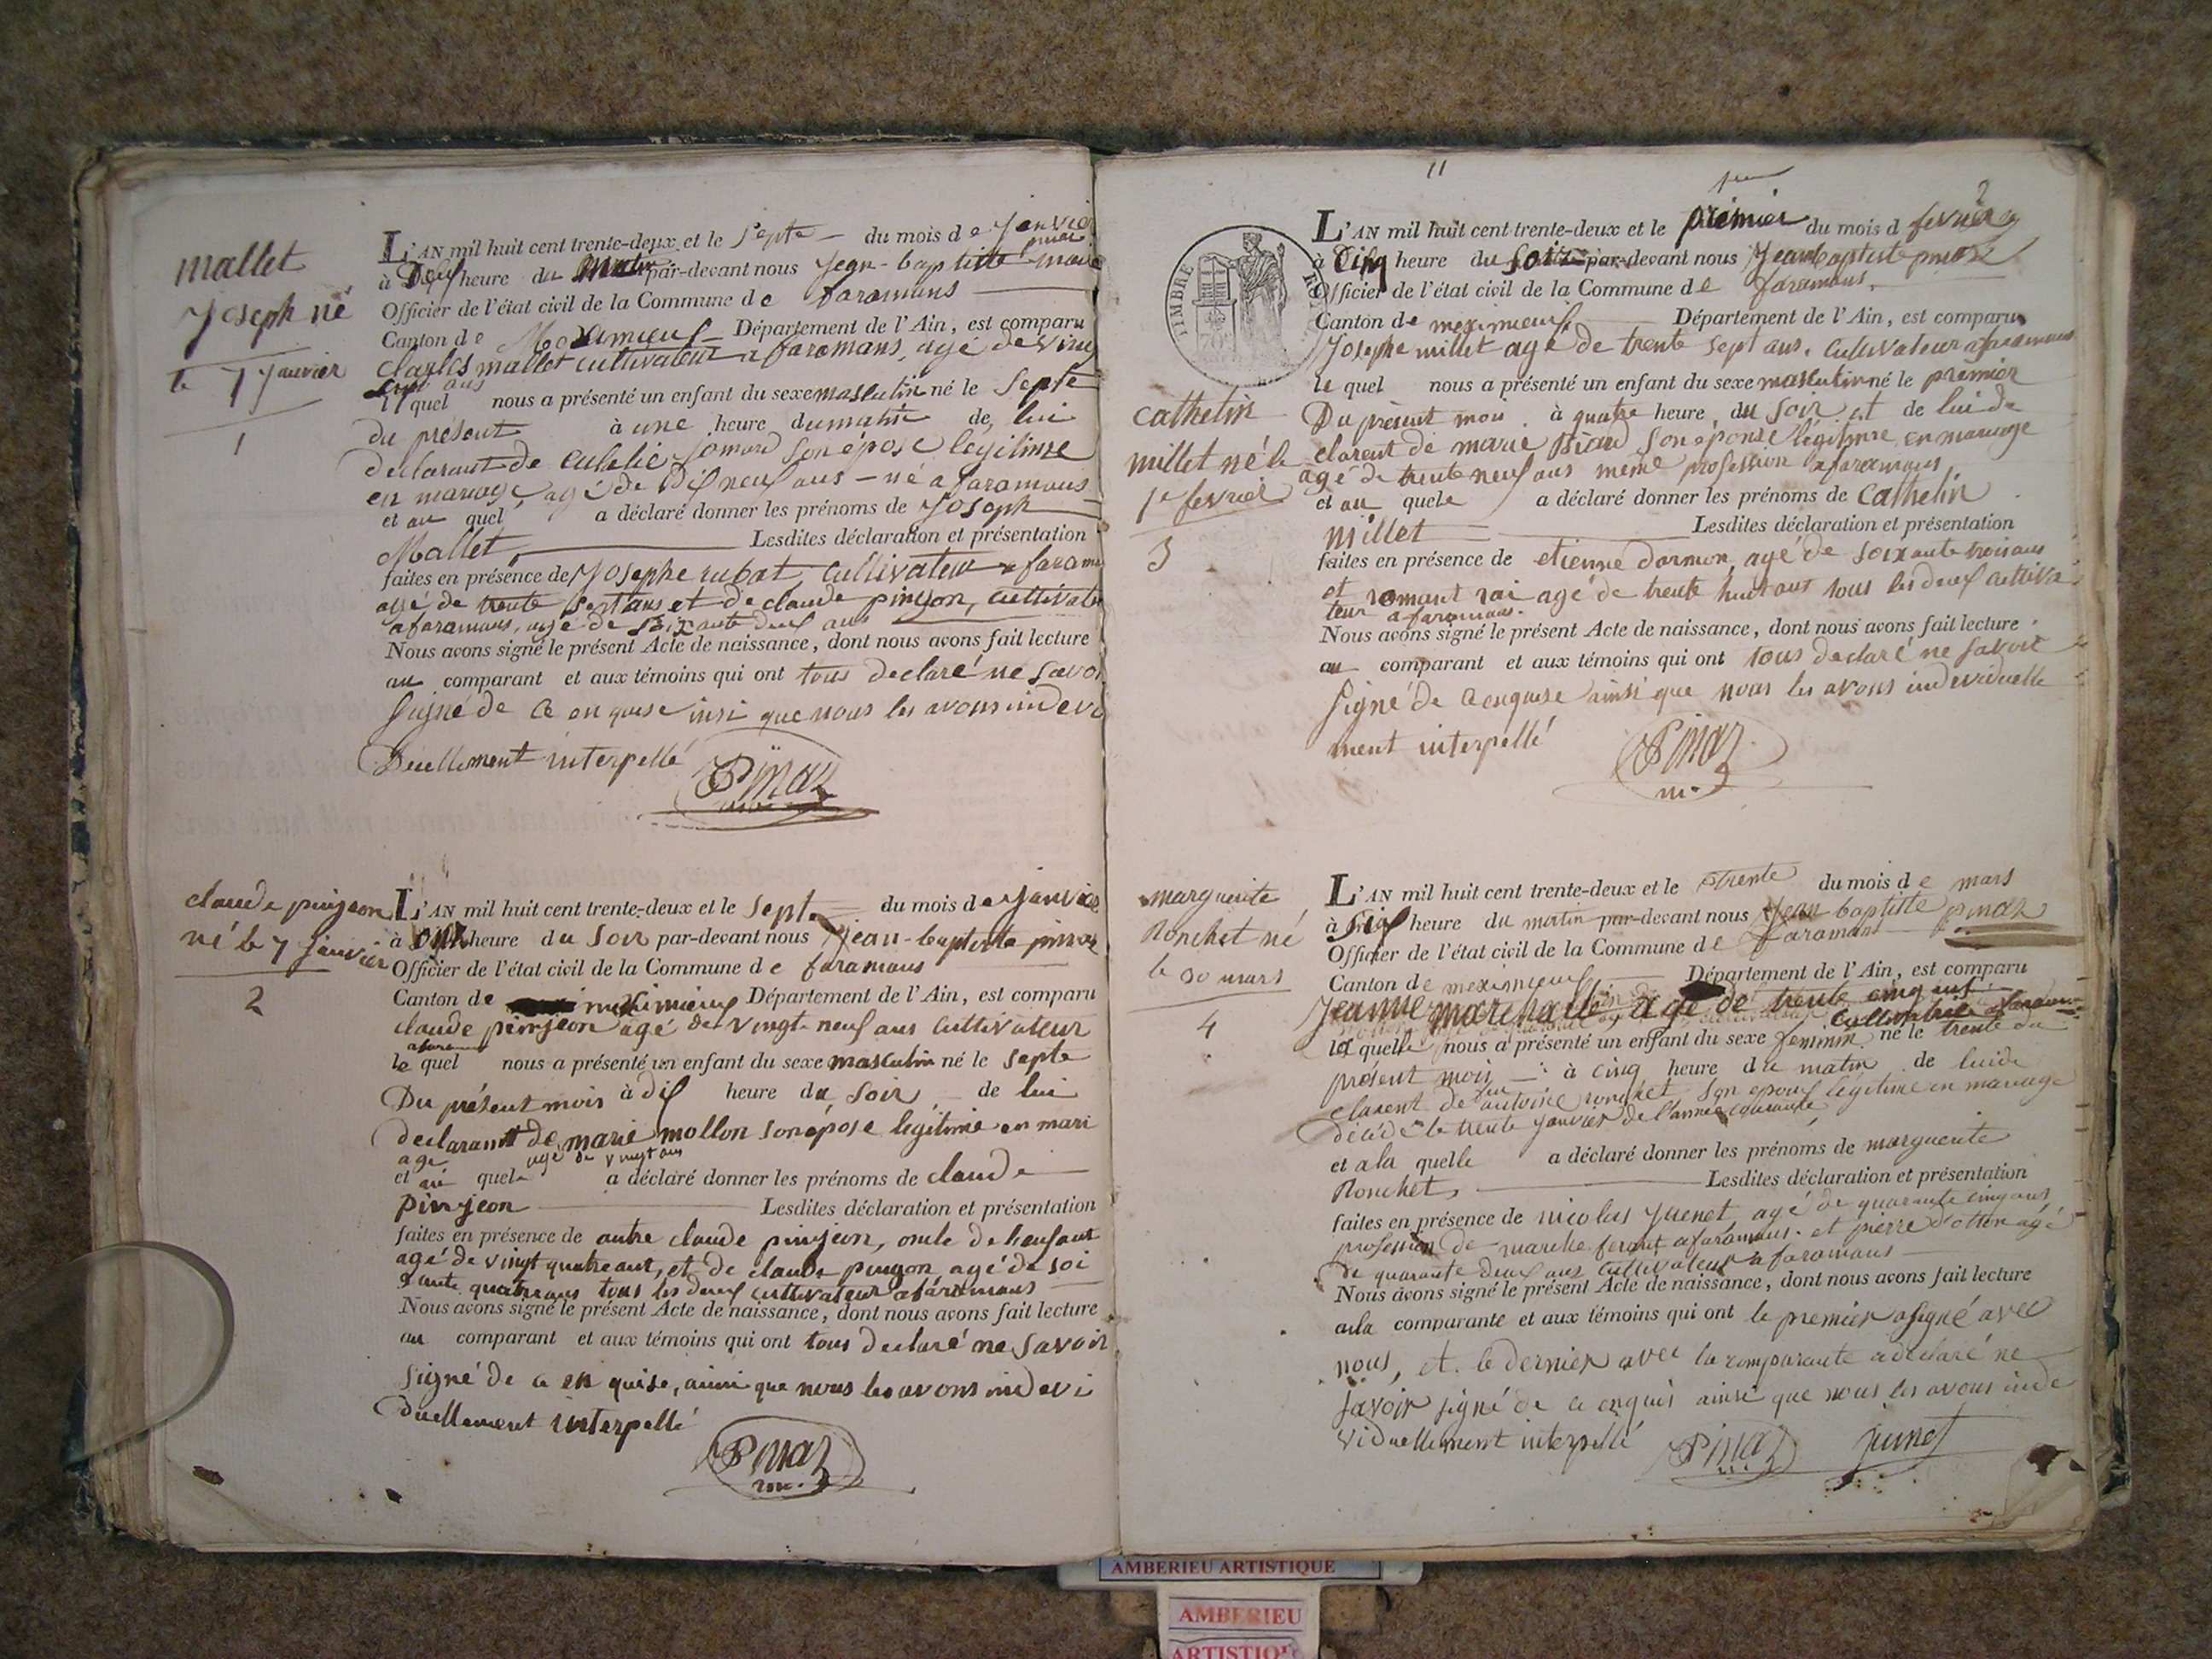 mallet
Joseph né
le 7 Janvier
1
L'AN mil huit cent trente-deux et le septe du mois de Janvier
à heure du matin par-devant nous Jean-baptiste pinaz maire
Officier de l'état civil de la Commune de faramans
Canton de Département de l'Ain, est comparu
charles mallet cultivateur a faramans, agé de vint
sept ans
le quel nous a présenté un enfant du sexe masculin né le septe
du présent à une heure du matin de lui
declarant de jomard son épose legitime
en mariage, agé de dix neuf ans - né a faramans
et au quel a déclaré donner les prénoms de Joseph
Mallet Lesdites déclaration et présentation
faites en présence de Josephe rubat, cultivateur a farama
agé de trente sept ans et de claude pinjon, cultivate
a faramans, agé de soixante deux ans
Nous avons signé le présent Acte de naissance, dont nous avons fait lecture
au comparant et aux témoins qui ont tous declaré ne savoi
signé de ce en quise insi que nous les avons indevi
duellement interpellé
Pinaz
claude pinjeon
né le 7 Janvier
2
L'AN mil huit cent trente-deux et le septe du mois de janvier
à heure du soir par-devant nous Jean-baptiste pinaz
Officier de l'état civil de la Commune de faramans
Canton de meximieux Département de l'Ain, est comparu
claude pinjeon agé de vingt neuf ans cultivateur
a faramans
le quel nous a présenté un enfant du sexe masculin né le septe
Du présent mois à dix heure du soir de lui
declarant de marie mollon son épose legitime en mari
age agé de vingt ans
et au quel a déclaré donner les prénoms de claude
pinjeon Lesdites déclaration et présentation
faites en présence de autre claude pinjeon, oncle de l'enfant
agé de vingt quatre ans, et de claude pingon agé de soi
xante quatre ans tous les deux cultivateur a faramans
Nous avons signé le présent Acte de naissance, dont nous avons fait lecture
au comparant et aux témoins qui ont tous declaré ne savoir
signé de ce en quise, ainsi que nous les avons indevi
duellement interpellé
Pinaz
m.
11
2
TIMBRE
70
cathelin
millet né le
1er fevrier
3
L'AN mil huit cent trente-deux et le premier du mois d fevrier
à cinq heure du soir par-devant nous Jean baptiste pinaz
Officier de l'état civil de la Commune de faramans.
Canton de meximieux Département de l'Ain, est comparu
Josephe millet agé de trente sept ans. cultivateur a faramans
le quel nous a présenté un enfant du sexe masculin né le premier
Du présent mois à quatre heure du soir et de lui de
clarent de marie son éponse légitime en mariage
agé de trente neuf ans meme profession a faramans
et au quele a déclaré donner les prénoms de Cathelin
millet Lesdites déclaration et présentation
faites en présence de etienne dormon, agé de soixante trois ans
et romant rai agé de trente huit ans tous les deux cultiva
teur a faramans.
Nous avons signé le présent Acte de naissance, dont nous avons fait lecture
au comparant et aux témoins qui ont tous declaré ne savoir
signé de ce enquise ainsi que nous les avons individuelle
ment interpellé
Pinaz
m.
marguerite
Ronchet né
le 30 mars
4
L'AN mil huit cent trente-deux et le trente du mois de mars
à six heure du matin par-devant nous Jean baptiste pinaz
Officier de l'état civil de la Commune de faramans
Canton de meximieux Département de l'Ain, est comparu
Jeanne marchalle, agé de trente cinq ans
cultivatrice a faramans
la quelle nous a présenté un enfant du sexe feminin né le trente du
présent mois à cinq heure du matin de lui de
clarent de feu antoine ronchet son epoux légitime en mariage
décédé le trente janvier de l'année courante
et a la quelle a déclaré donner les prénoms de marguerite
Ronchet, Lesdites déclaration et présentation
faites en présence de nicolas Juenet agé de quarante cinq ans,
profession de marche ferant a faramans. et pierre agé
de quarante deux ans cultivateur a faramans
Nous avons signé le présent Acte de naissance, dont nous avons fait lecture
a la comparante et aux témoins qui ont le premier a signé avec
nous, et le dernier avec la comparante a declaré ne
savoir signé de ce enquis ainsi que nous les avons inde
viduellement interpellé
Pinaz juenet
AMBERIEU ARTISTIQUE
AMBERIEU
ARTISTIQUE